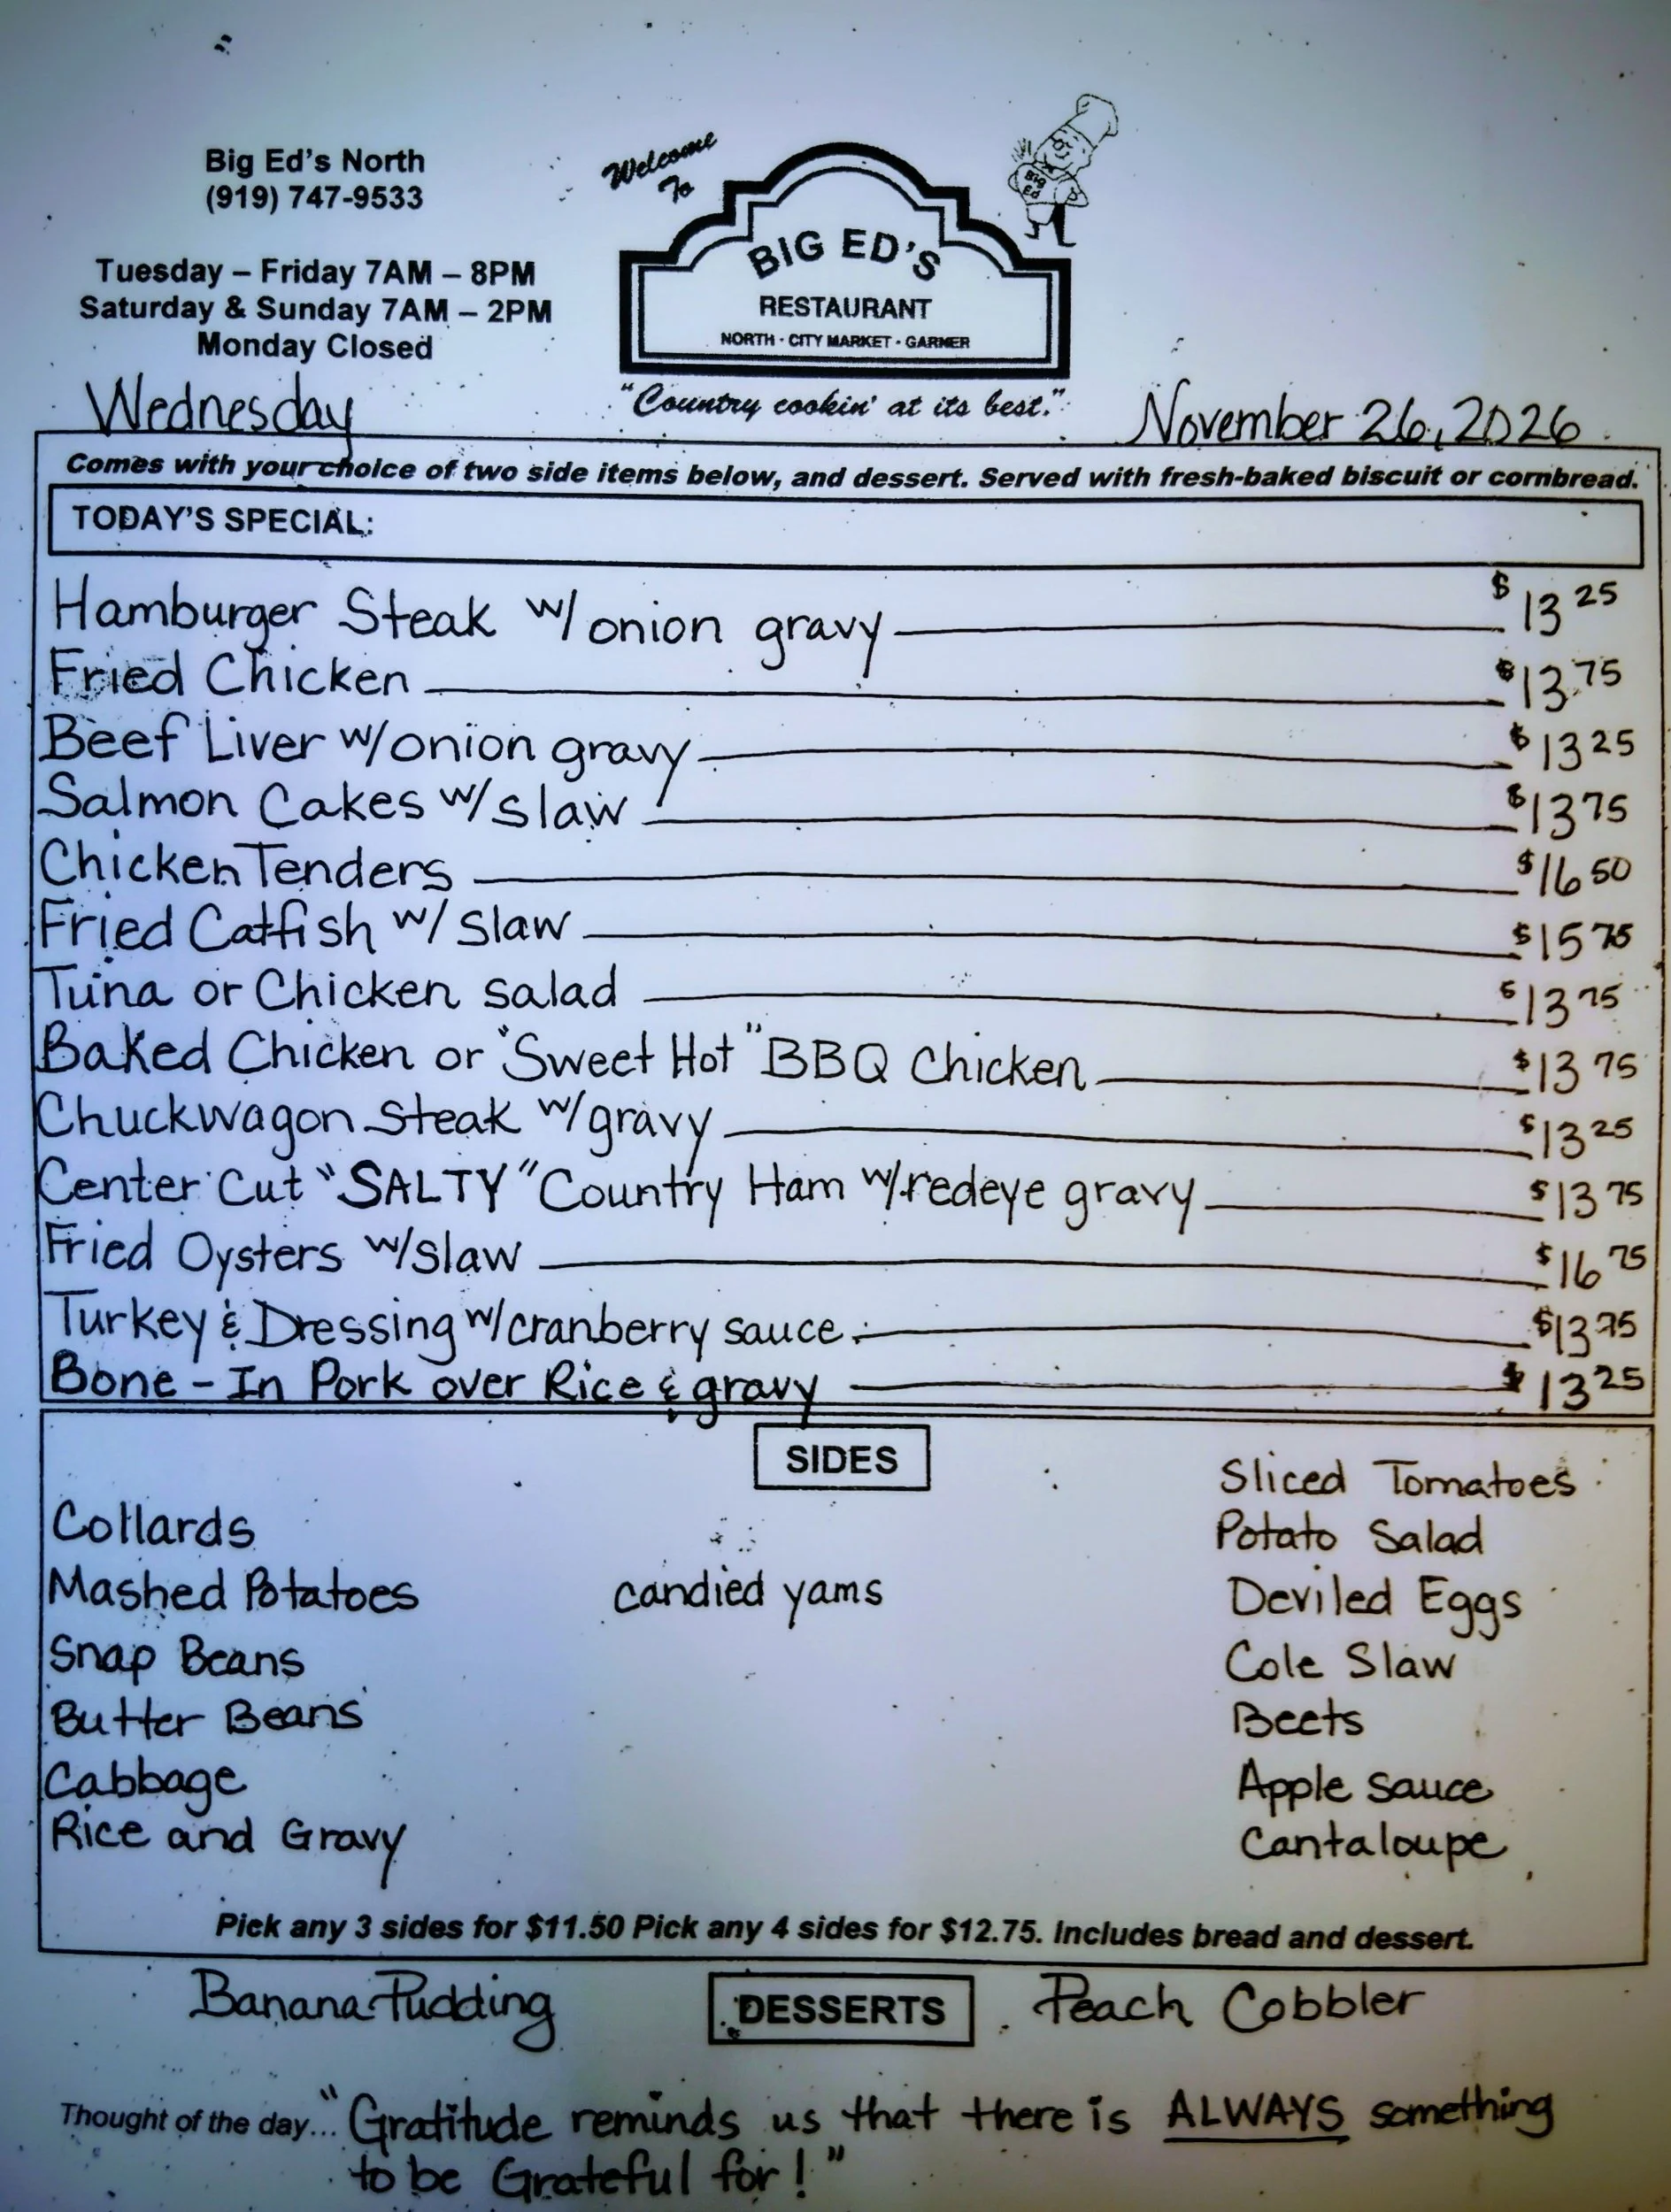 Big Ed's North
(919) 747-9533
Tuesday – Friday 7AM – 8PM
Saturday & Sunday 7AM – 2PM
Monday Closed
Welcome
To
BIG ED'S
RESTAURANT
NORTH · CITY MARKET · GARNER
"Country cookin' at its best."
Big
Ed
Wednesday
November 26, 2026
Comes with your choice of two side items below, and dessert. Served with fresh-baked biscuit or cornbread.
TODAY'S SPECIAL:
Hamburger Steak w/ onion gravy $13 25
Fried Chicken $13.75
Beef Liver w/ onion gravy $13 25
Salmon Cakes w/ slaw $13 75
Chicken Tenders $16 50
Fried Catfish w/ slaw $15 75
Tuna or Chicken salad $13 75
Baked Chicken or "Sweet Hot" BBQ Chicken $13 75
Chuckwagon Steak w/ gravy $13 25
Center Cut "SALTY" Country Ham w/ redeye gravy $13 75
Fried Oysters w/ slaw $16 75
Turkey & Dressing w/ cranberry sauce $13 75
Bone-In Pork over Rice & gravy $13 25
SIDES
Collards
Mashed Potatoes
Snap Beans
Butter Beans
Cabbage
Rice and Gravy
candied yams
Sliced Tomatoes
Potato Salad
Deviled Eggs
Cole Slaw
Beets
Apple sauce
Cantaloupe
Pick any 3 sides for $11.50 Pick any 4 sides for $12.75. Includes bread and dessert.
Banana Pudding
DESSERTS
Peach Cobbler
Thought of the day... "Gratitude reminds us that there is ALWAYS something
to be Grateful for!"